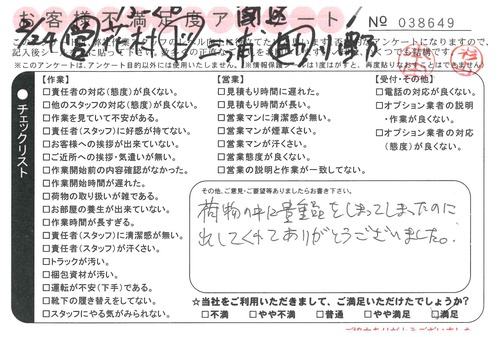 お客様不満足度アンケート
№ 038649
※このアンケートは、アンケート目的以外には使用いたしません。
チェックリスト
【作業】
□責任者の対応(態度)が良くない。
□他のスタッフの対応(態度)が良くない。
□作業を見ていて不安がある。
□責任者(スタッフ)に好感が持てない。
□お客様への挨拶が出来ていない。
□ご近所への挨拶・気遣いが無い。
□作業開始前の内容確認がなかった。
□作業開始時間が遅れた。
□荷物の取り扱いが雑である。
□お部屋の養生が出来ていない。
□作業時間が長すぎる。
□責任者(スタッフ)に清潔感が無い。
□責任者(スタッフ)が汗くさい。
□トラックが汚い。
□梱包資材が汚い。
□運転が不安(下手)である。
□靴下の履き替えをしてない。
□スタッフにやる気がみられない。
【営業】
□見積もり時間に遅れた。
□見積もり時間が長い。
□営業マンに清潔感が無い。
□営業マンが煙草くさい。
□営業マンが汗くさい。
□営業態度が良くない。
□営業の説明と作業が一致してない。
【受付・その他】
□電話の対応が良くない。
□オプション業者の説明
・作業が良くない。
□オプション業者の対応
(態度)が良くない。
その他、ご意見・ご要望等ありましたらお書き下さい。
荷物の中に貴重品をしまってしまったのに
出してくれてありがとうございました。
☆当社をご利用いただきまして、ご満足いただけたでしょうか?
□不満 □やや不満 □普通 □やや満足 □満足